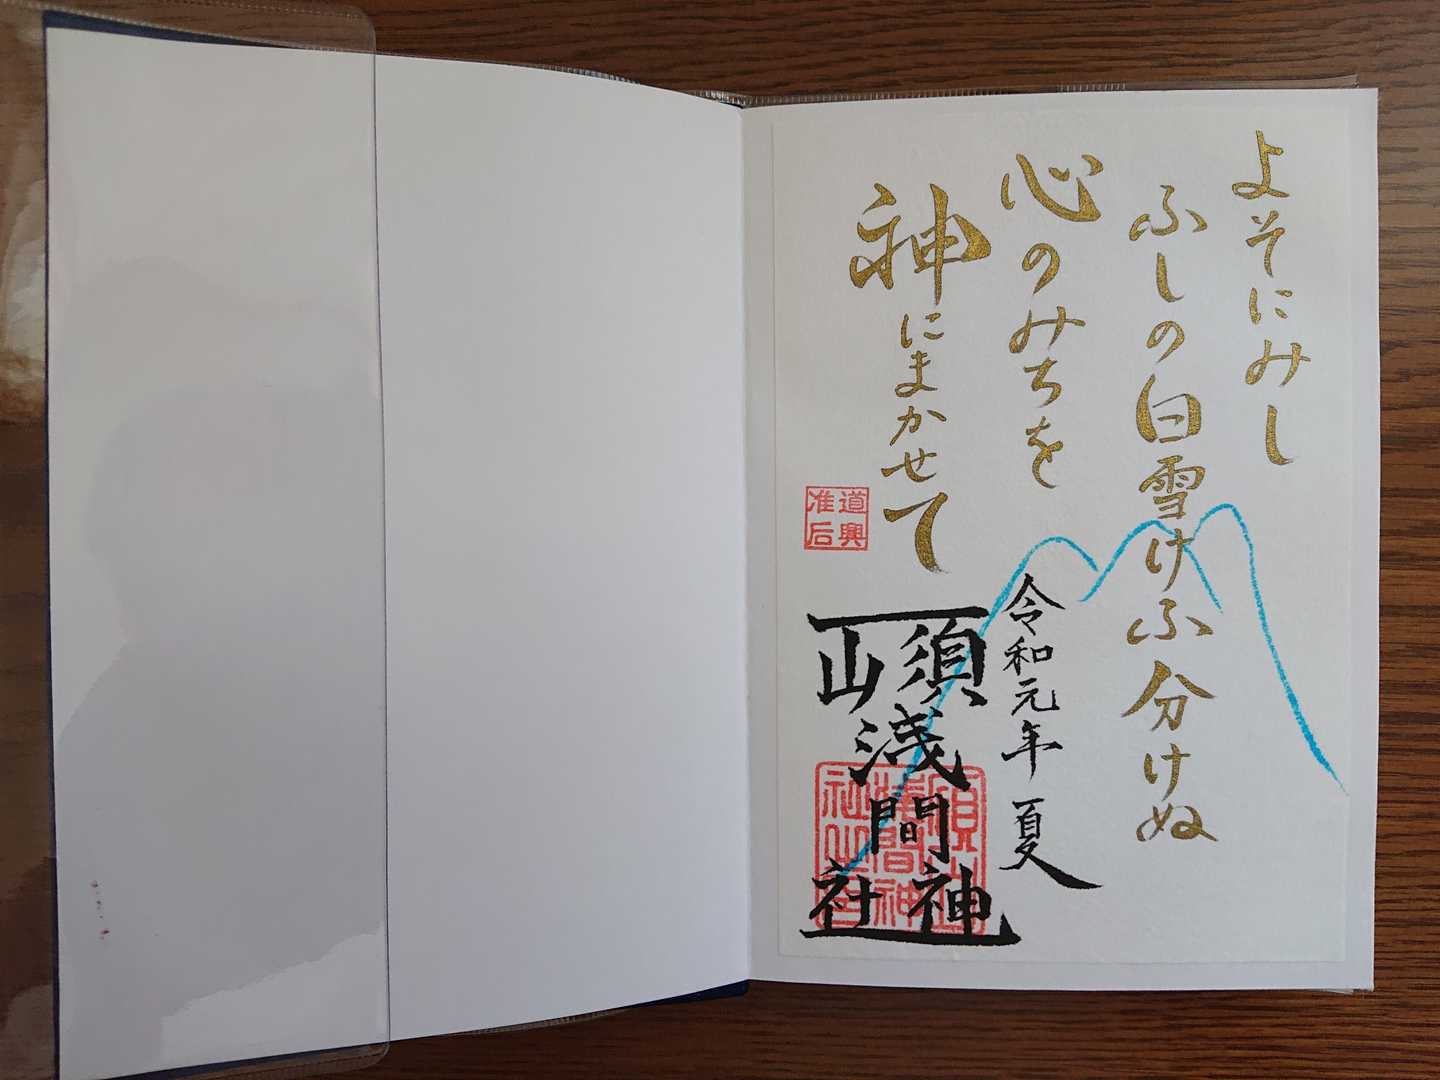 よそにみし
ふしの白雪けふ分けぬ
心のみちを
神にまかせて
道興
准后
令和元年 夏
須山浅間神社